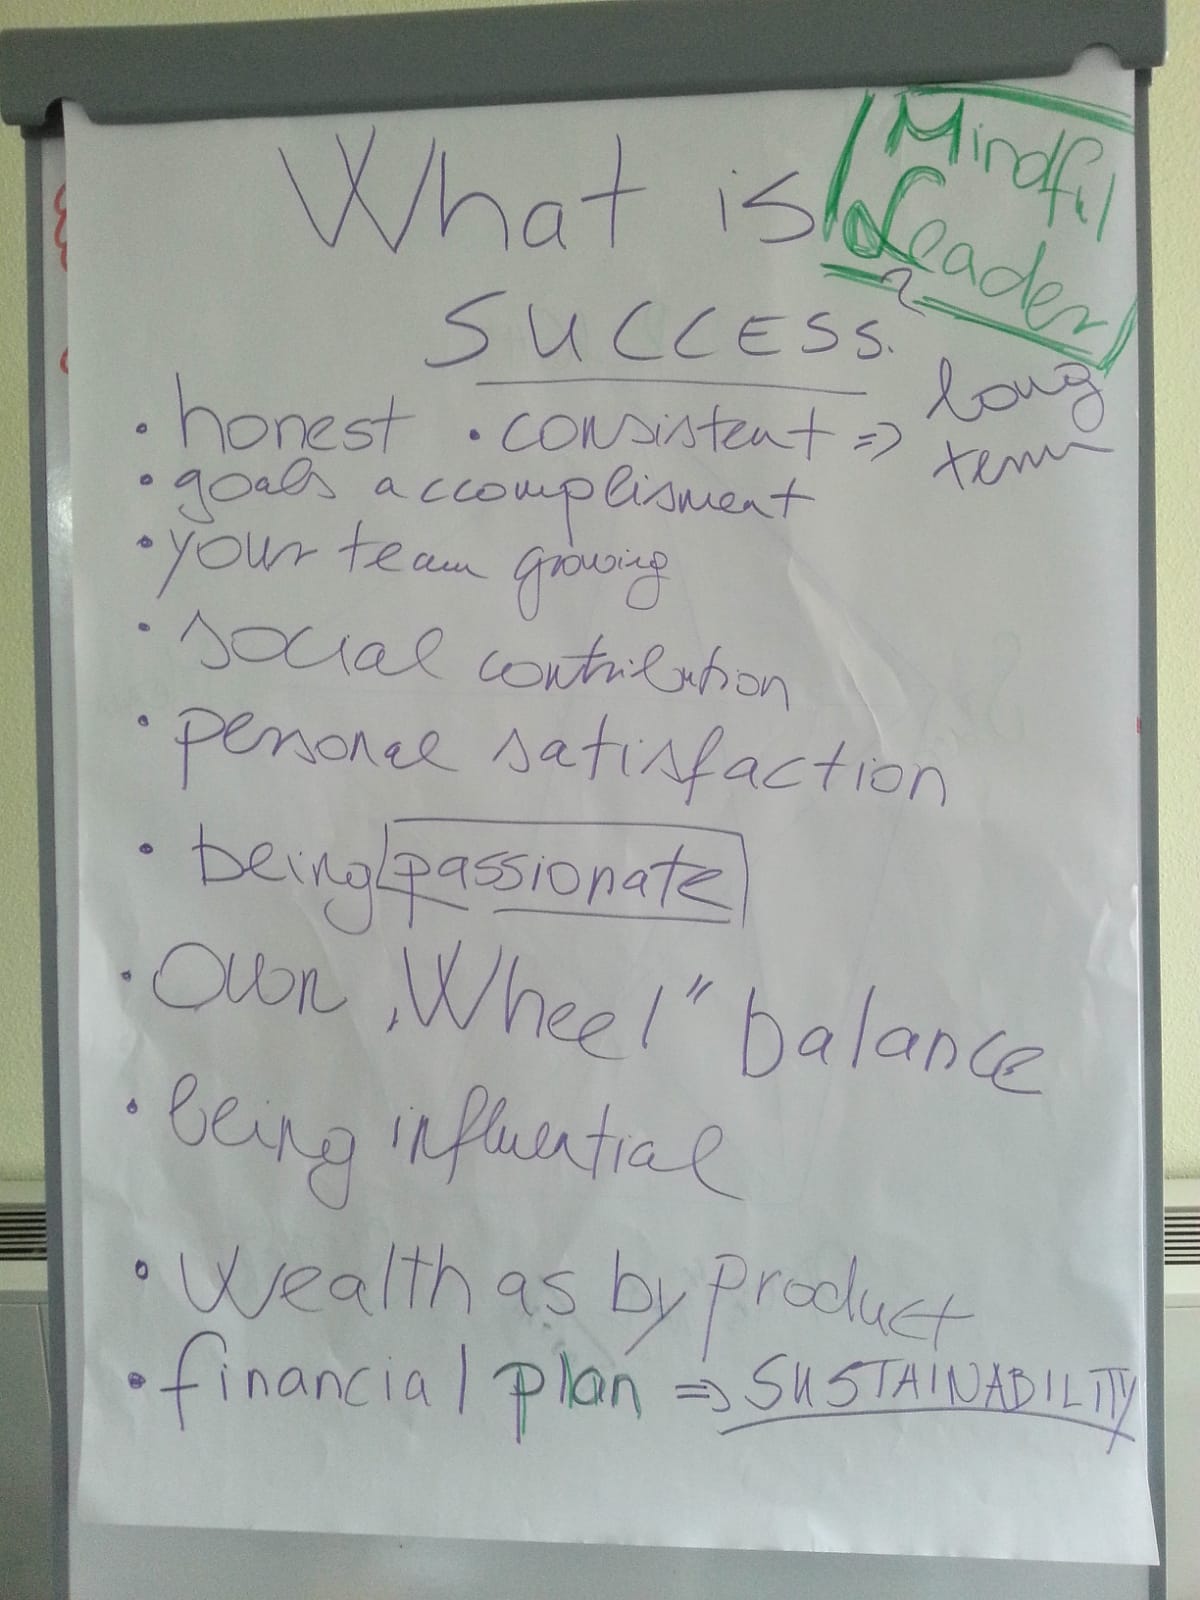 What is
Mindful
Leader
SUCCESS?
• honest • consistent => long
term
• goals accomplisment
• your team growing
• social contribution
• personal satisfaction
• being passionate
• Own „Wheel” balance
• being influential
• Wealth as by product
• financial plan => SUSTAINABILITY